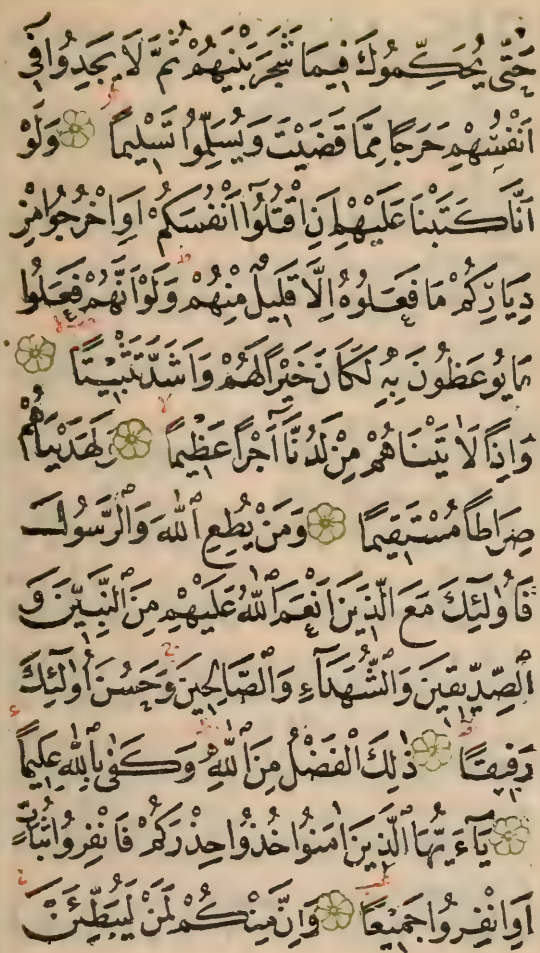 حَتّٰى يُحَكِّمُوكَ فِيمَا شَجَرَ بَيْنَهُمْ ثُمَّ لَا يَجِدُوا فِى
اَنْفُسِهِمْ حَرَجًا مِمَّا قَضَيْتَ وَيُسَلِّمُوا تَسْلِيمًا وَلَوْ
اَنَّا كَتَبْنَا عَلَيْهِمْ اَنِ اقْتُلُوٓا اَنْفُسَكُمْ اَوِ اخْرُجُوا مِنْ
دِيَارِكُمْ مَا فَعَلُوهُ اِلَّا قَلِيلٌ مِنْهُمْ وَلَوْ اَنَّهُمْ فَعَلُوا
مَا يُوعَظُونَ بِهِ لَكَانَ خَيْرًا لَهُمْ وَاَشَدَّ تَثْبِيتًا
وَاِذًا لَاٰتَيْنَاهُمْ مِنْ لَدُنَّآ اَجْرًا عَظِيمًا وَلَهَدَيْنَاهُمْ
صِرَاطًا مُسْتَقِيمًا وَمَنْ يُطِعِ ٱللّٰهَ وَٱلرَّسُولَ
فَاُولٰٓئِكَ مَعَ الَّذِينَ اَنْعَمَ ٱللّٰهُ عَلَيْهِمْ مِنَ ٱلنَّبِيّٖنَ وَ
ٱلصِّدِّيقِينَ وَٱلشُّهَدَآءِ وَٱلصَّالِحِينَ وَحَسُنَ اُولٰٓئِكَ
رَفِيقًا ذٰلِكَ ٱلْفَضْلُ مِنَ ٱللّٰهِ وَكَفٰى بِٱللّٰهِ عَلِيمًا
يَآءَيُّهَا ٱلَّذِينَ اٰمَنُوا خُذُوا حِذْرَكُمْ فَانْفِرُوا ثُبَاتٍ
اَوِ انْفِرُوا جَمِيعًا وَاِنَّ مِنْكُمْ لَمَنْ لَيُبَطِّئَنَّ